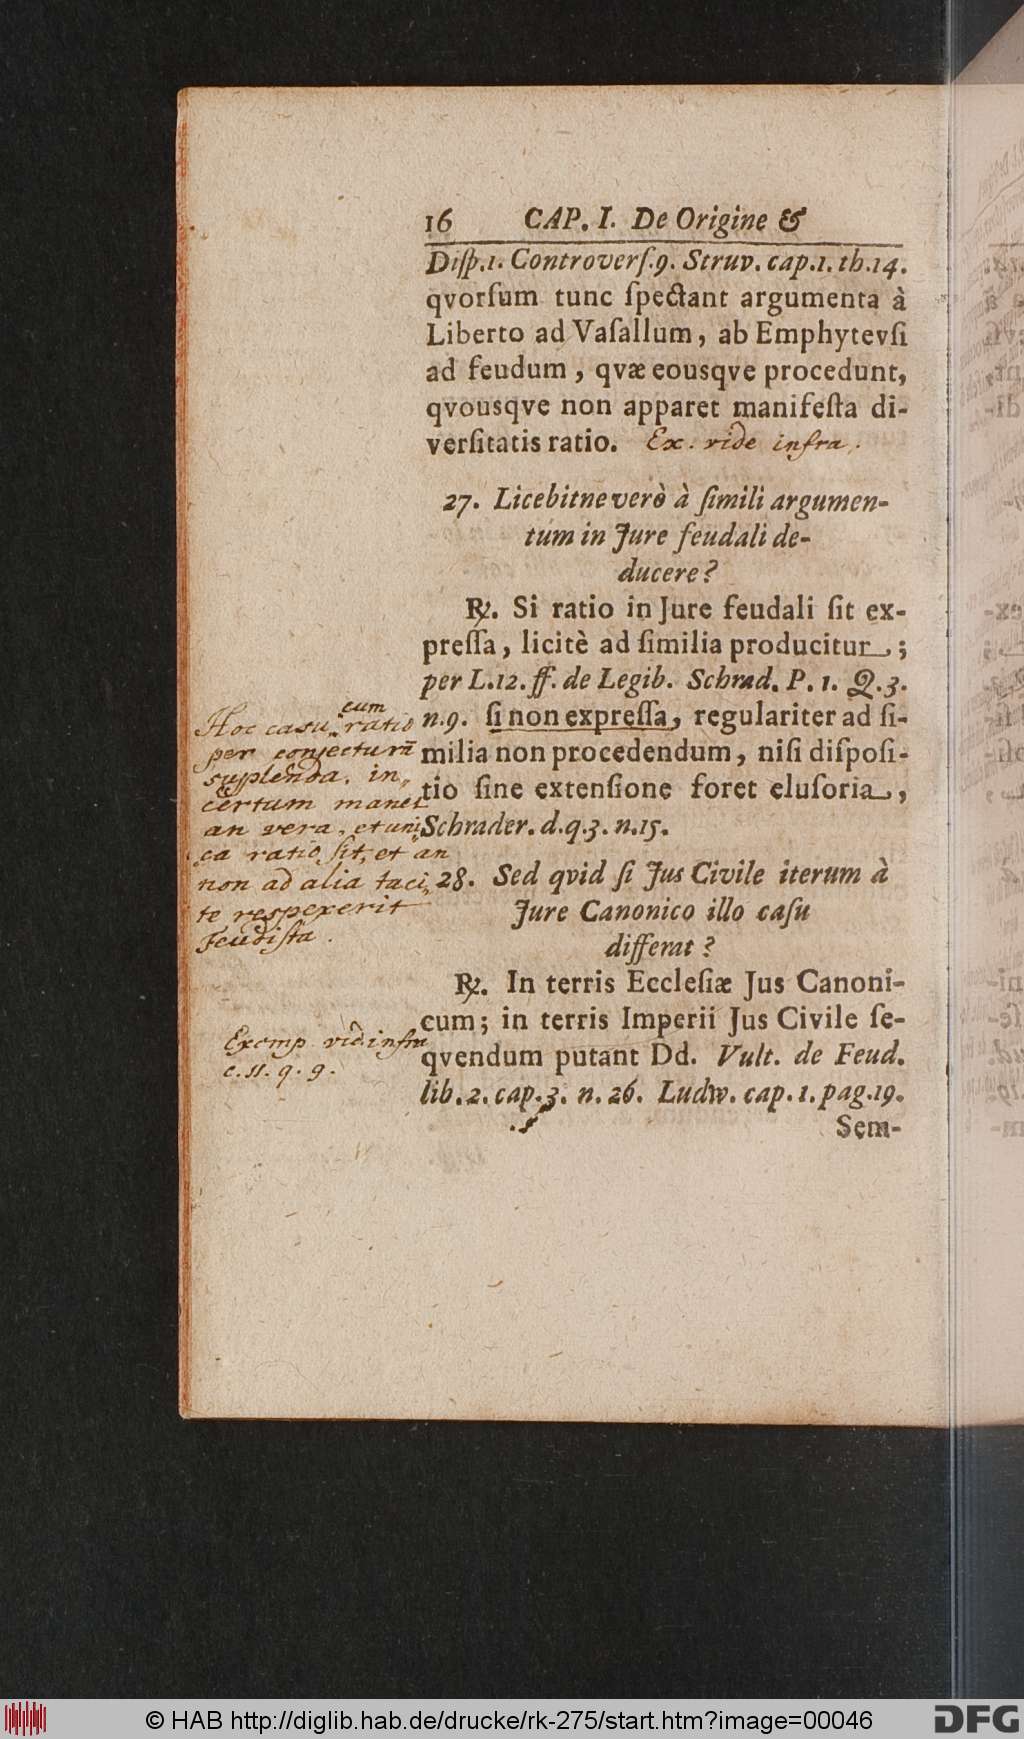 16 CAP. I. De Origine &
Diſp.1. Controverſ.9. Struv. cap.1. th.14.
qvorſum tunc ſpectant argumenta à
Liberto ad Vaſallum, ab Emphytevſi
ad feudum, qvæ eousqve procedunt,
qvousqve non apparet manifeſta di-
verſitatis ratio. Ex. vide infra.
27. Licebitne verò à ſimili argumen-
tum in Jure feudali de-
ducere?
℟. Si ratio in Jure feudali ſit ex-
preſſa, licitè ad ſimilia producitur;
per L.12. ff. de Legib. Schrad. P. 1. Q.3.
n.9. ſi non expreſſa, regulariter ad ſi-
milia non procedendum, niſi diſpoſi-
tio ſine extenſione foret eluſoria,
Schrader. d.q.3. n.15.
28. Sed qvid ſi Jus Civile iterum à
Jure Canonico illo caſu
differat?
℟. In terris Eccleſiæ Jus Canoni-
cum; in terris Imperii Jus Civile ſe-
qvendum putant Dd. Vult. de Feud.
lib.2. cap.3. n. 26. Ludw. cap.1. pag.19.
Sem-
cum
Hoc casu ratio
per conjecturā
supplenda, in-
certum manet
an vera, et uni-
ca ratio ſit, et an
non ad alia taci-
te respexerit
Feudiſta.
Exemp. vid. infra
c. 11. q. 9.
© HAB http://diglib.hab.de/drucke/rk-275/start.htm?image=00046
DFG